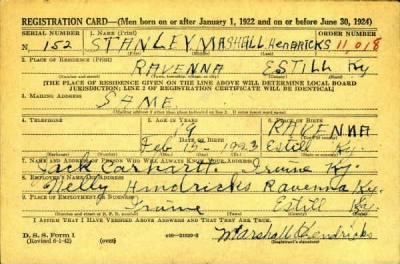 REGISTRATION CARD—(Men born on or after January 1, 1922 and on or before June 30, 1924)
SERIAL NUMBER 1. NAME (Print) ORDER NUMBER
N 152 STANLEY MASHALL HENDRICKS 11,018
2. PLACE OF RESIDENCE (Print)
RAVENNA ESTILL Ky
[THE PLACE OF RESIDENCE GIVEN ON THE LINE ABOVE WILL DETERMINE LOCAL BOARD
JURISDICTION; LINE 2 OF REGISTRATION CERTIFICATE WILL BE IDENTICAL]
3. MAILING ADDRESS
SAME
4. TELEPHONE 5. AGE IN YEARS 6. PLACE OF BIRTH
19 RAVENNA
DATE OF BIRTH
Feb 15 1923 Estill Ky.
7. NAME AND ADDRESS OF PERSON WHO WILL ALWAYS KNOW YOUR ADDRESS
Jack Earhart. Irvine Ky.
8. EMPLOYER'S NAME AND ADDRESS
Nelly Hendricks Ravenna Ky.
9. PLACE OF EMPLOYMENT OR BUSINESS
Irvine Estill Ky.
I AFFIRM THAT I HAVE VERIFIED ABOVE ANSWERS AND THAT THEY ARE TRUE.
D. S. S. Form 1
(Revised 6-1-42) (over) Marshall Hendricks
(Registrant's signature)